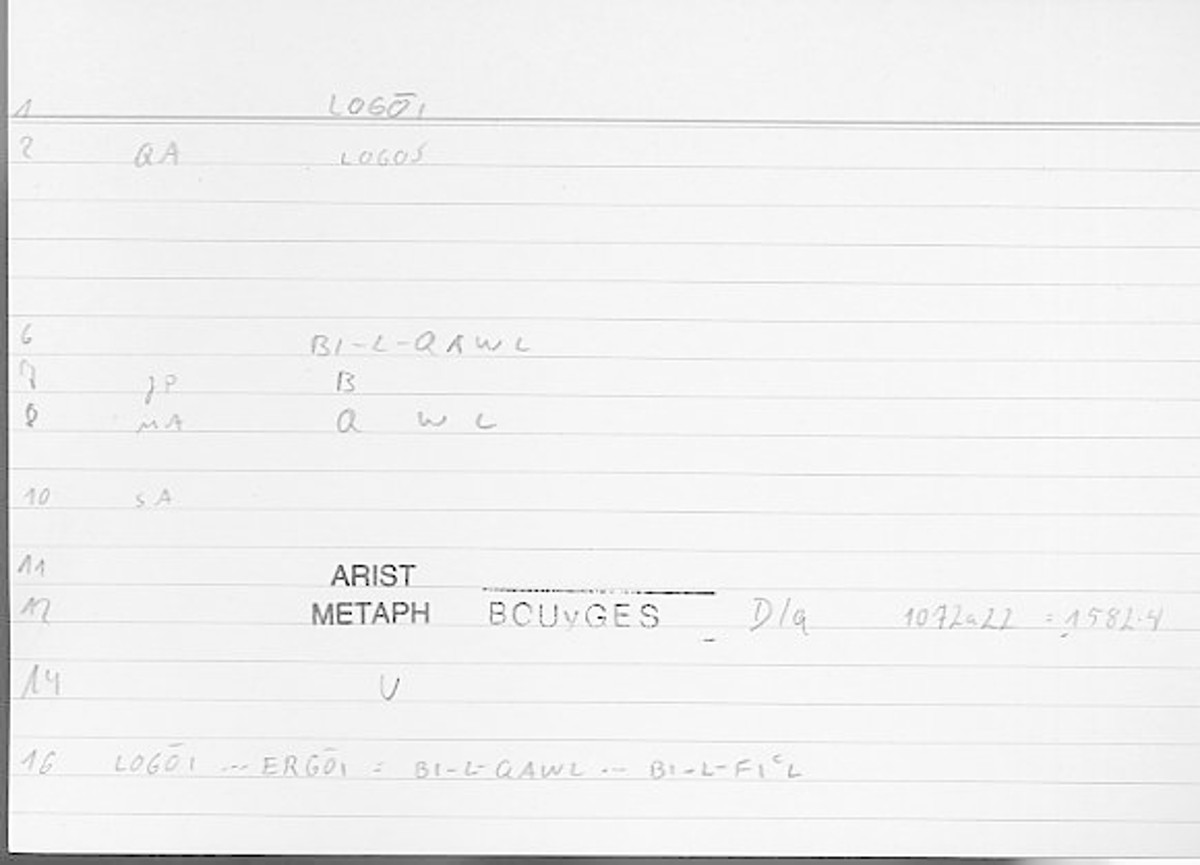 1 LOGŌI
2 QA LOGOS
6 BI-L-QAWL
7 JP B
8 MA Q W L
10 SA
11 ARIST
12 METAPH BOUyGES D/a 1072a22 = 1582.4
14 U
16 LOGŌI ... ERGŌI = BI-L-QAWL ... BI-L-FIᶜL